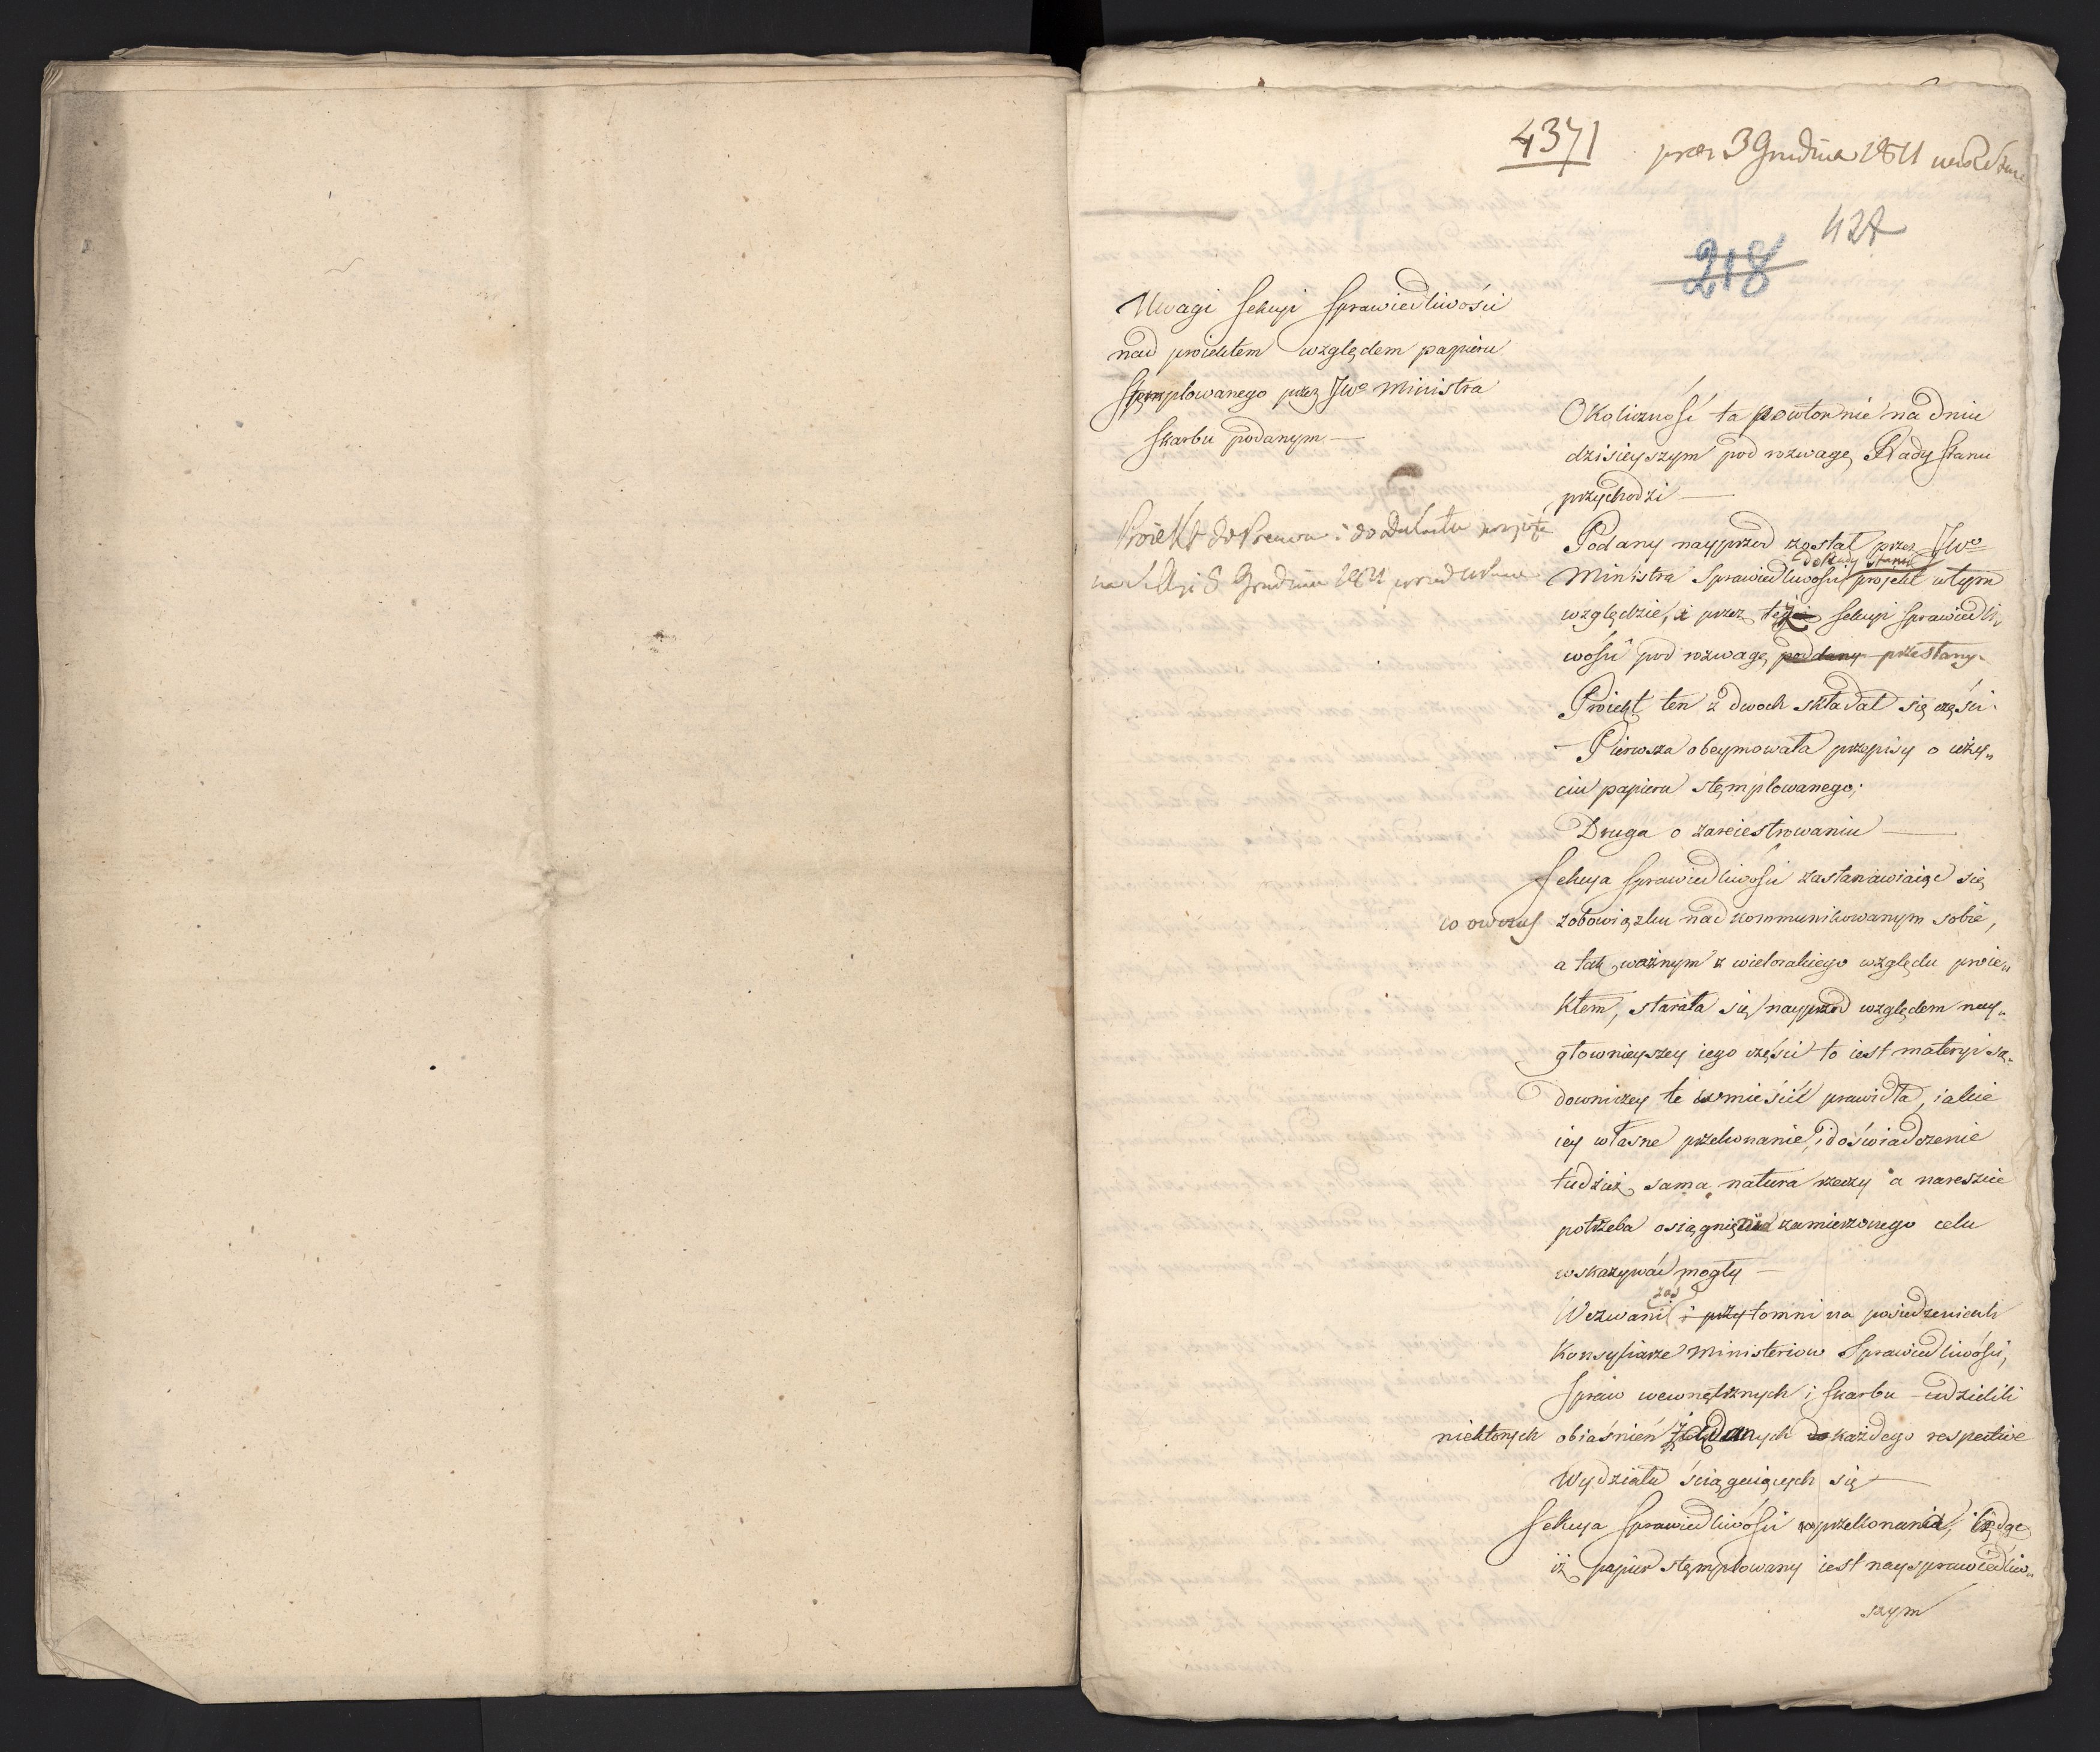 4371
prez 3 Grudnia 1811
427
218
Uwagi Sekcyi Sprawiedliwości
nad proiektem względem papieru
stęmplowanego przez JWo Ministra
Skarbu podanym —
Proiekt do Prawa i do Dekretu przyięte
na Sessyi 8 Grudnia 1811
Okoliczność ta powtornie na dniu
dzisieyszym pod rozwagę Rady Stanu
przychodzi —
Podany nayprzod został przez JWo
do Rady Stanu
Ministra Sprawiedliwości projekt w tym
względzie, i przez też Sekcyi Sprawiedli„
wości pod rozwagę poddany przesłany.
Proiekt ten z dwoch składał się części.
— Pierwsza obeymowała przepisy o uży„
ciu papieru stęmplowanego;
Druga o zareiestrowaniu —
Sekcya Sprawiedliwości zastanawiaiąc się
co owczas zobowiązku nad kommunikowanym sobie,
a tak ważnym z wielorakiego względu proie„
ktem, starała się nayprzod względem nay„
głownieyszey iego części to iest materyi są„
downiczey te umieścić prawidła, iakie
iey własne przekonanie, i doświadczenie
tudzież sama natura rzeczy a nareszcie
potrzeba osiągnięcia zamierzonego celu
wskazywać mogły —
zaś
Wezwani i przytomni na posiedzeniach
Konsyliarze Ministeriow Sprawiedliwości,
Spraw wewnętrznych i Skarbu udzielili
niektorych obiaśnień żądanych do każdego respective
Wydziału ściągaiących się —
Sekcya Sprawiedliwości przekonania, będąc
iż papier stęmplowany iest naysprawiedliw„
szym